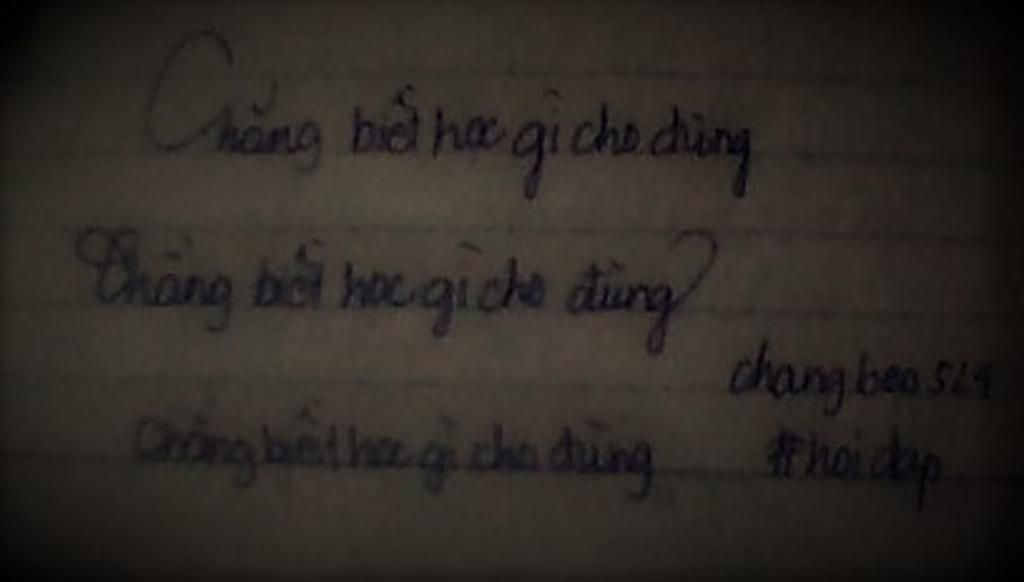 Chẳng biết học gì cho đúng
Chẳng biết học gì cho đúng
changbeo529
Chẳng biết học gì cho đúng #hoidap